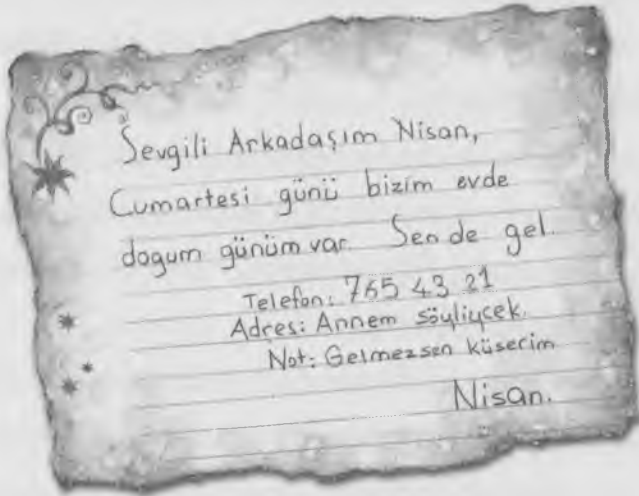 Sevgili Arkadaşım Nisan,
Cumartesi günü bizim evde
dogum günüm var. Sen de gel.
Telefon: 765 43 21
Adres: Annem söyliycek.
Not: Gelmezsen küserim
Nisan.